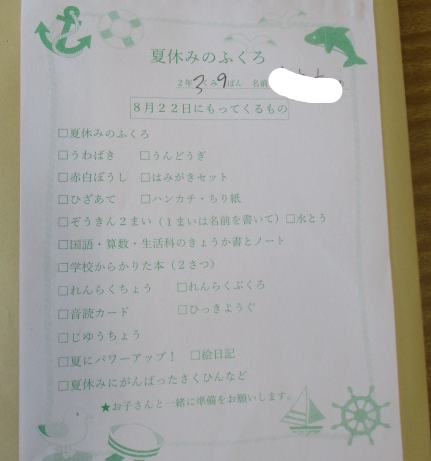 夏休みのふくろ
2年3くみ9ばん 名前
8月22日にもってくるもの
□夏休みのふくろ
□うわばき □うんどうぎ
□赤白ぼうし □はみがきセット
□ひざあて □ハンカチ・ちり紙
□ぞうきん2まい(1まいは名前を書いて)□水とう
□国語・算数・生活科のきょうか書とノート
□学校からかりた本(2さつ)
□れんらくちょう □れんらくぶくろ
□音読カード □ひっきようぐ
□じゆうちょう
□夏にパワーアップ! □絵日記
□夏休みにがんばったさくひんなど
★お子さんと一緒に準備をお願いします。